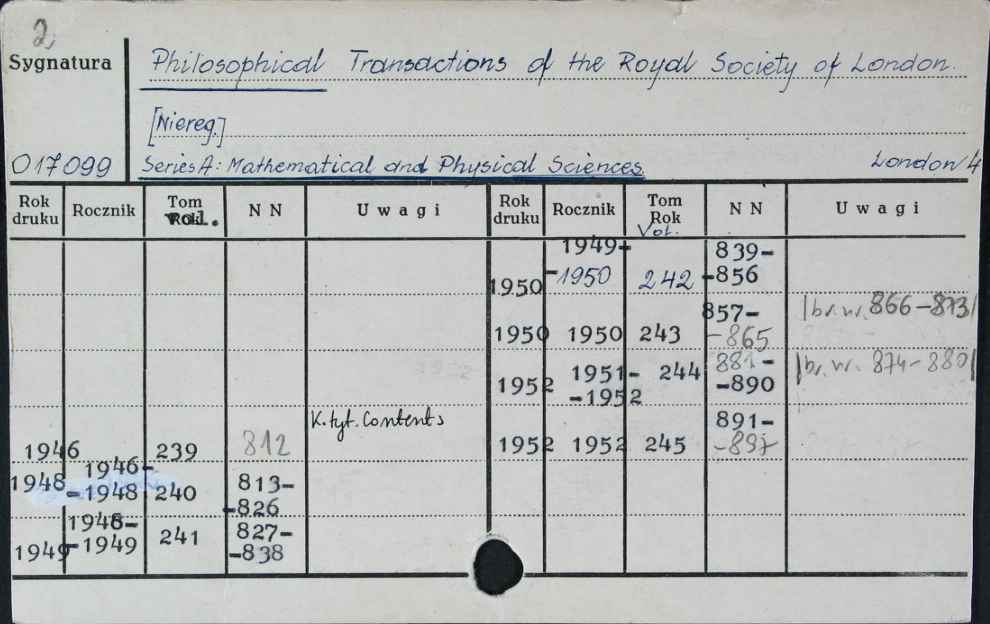 2
Sygnatura
Philosophical Transactions of the Royal Society of London.
[Niereg.]
017099
Series A: Mathematical and Physical Sciences
London 4
Rok druku Rocznik Tom Vol. NN Uwagi
1946 239 812 K. tyt. Contents
1948 1946-
-1948 240 813-
-826
1949 1948-
-1949 241 827-
-838
Rok druku Rocznik Tom Rok Vol. NN Uwagi
1950 1949-
-1950 242 839-
-856
1950 1950 243 857-
-865 |br. nr. 866-873|
1952 1951-
-1952 244 881-
-890 |br. nr. 874-880|
1952 1952 245 891-
-897